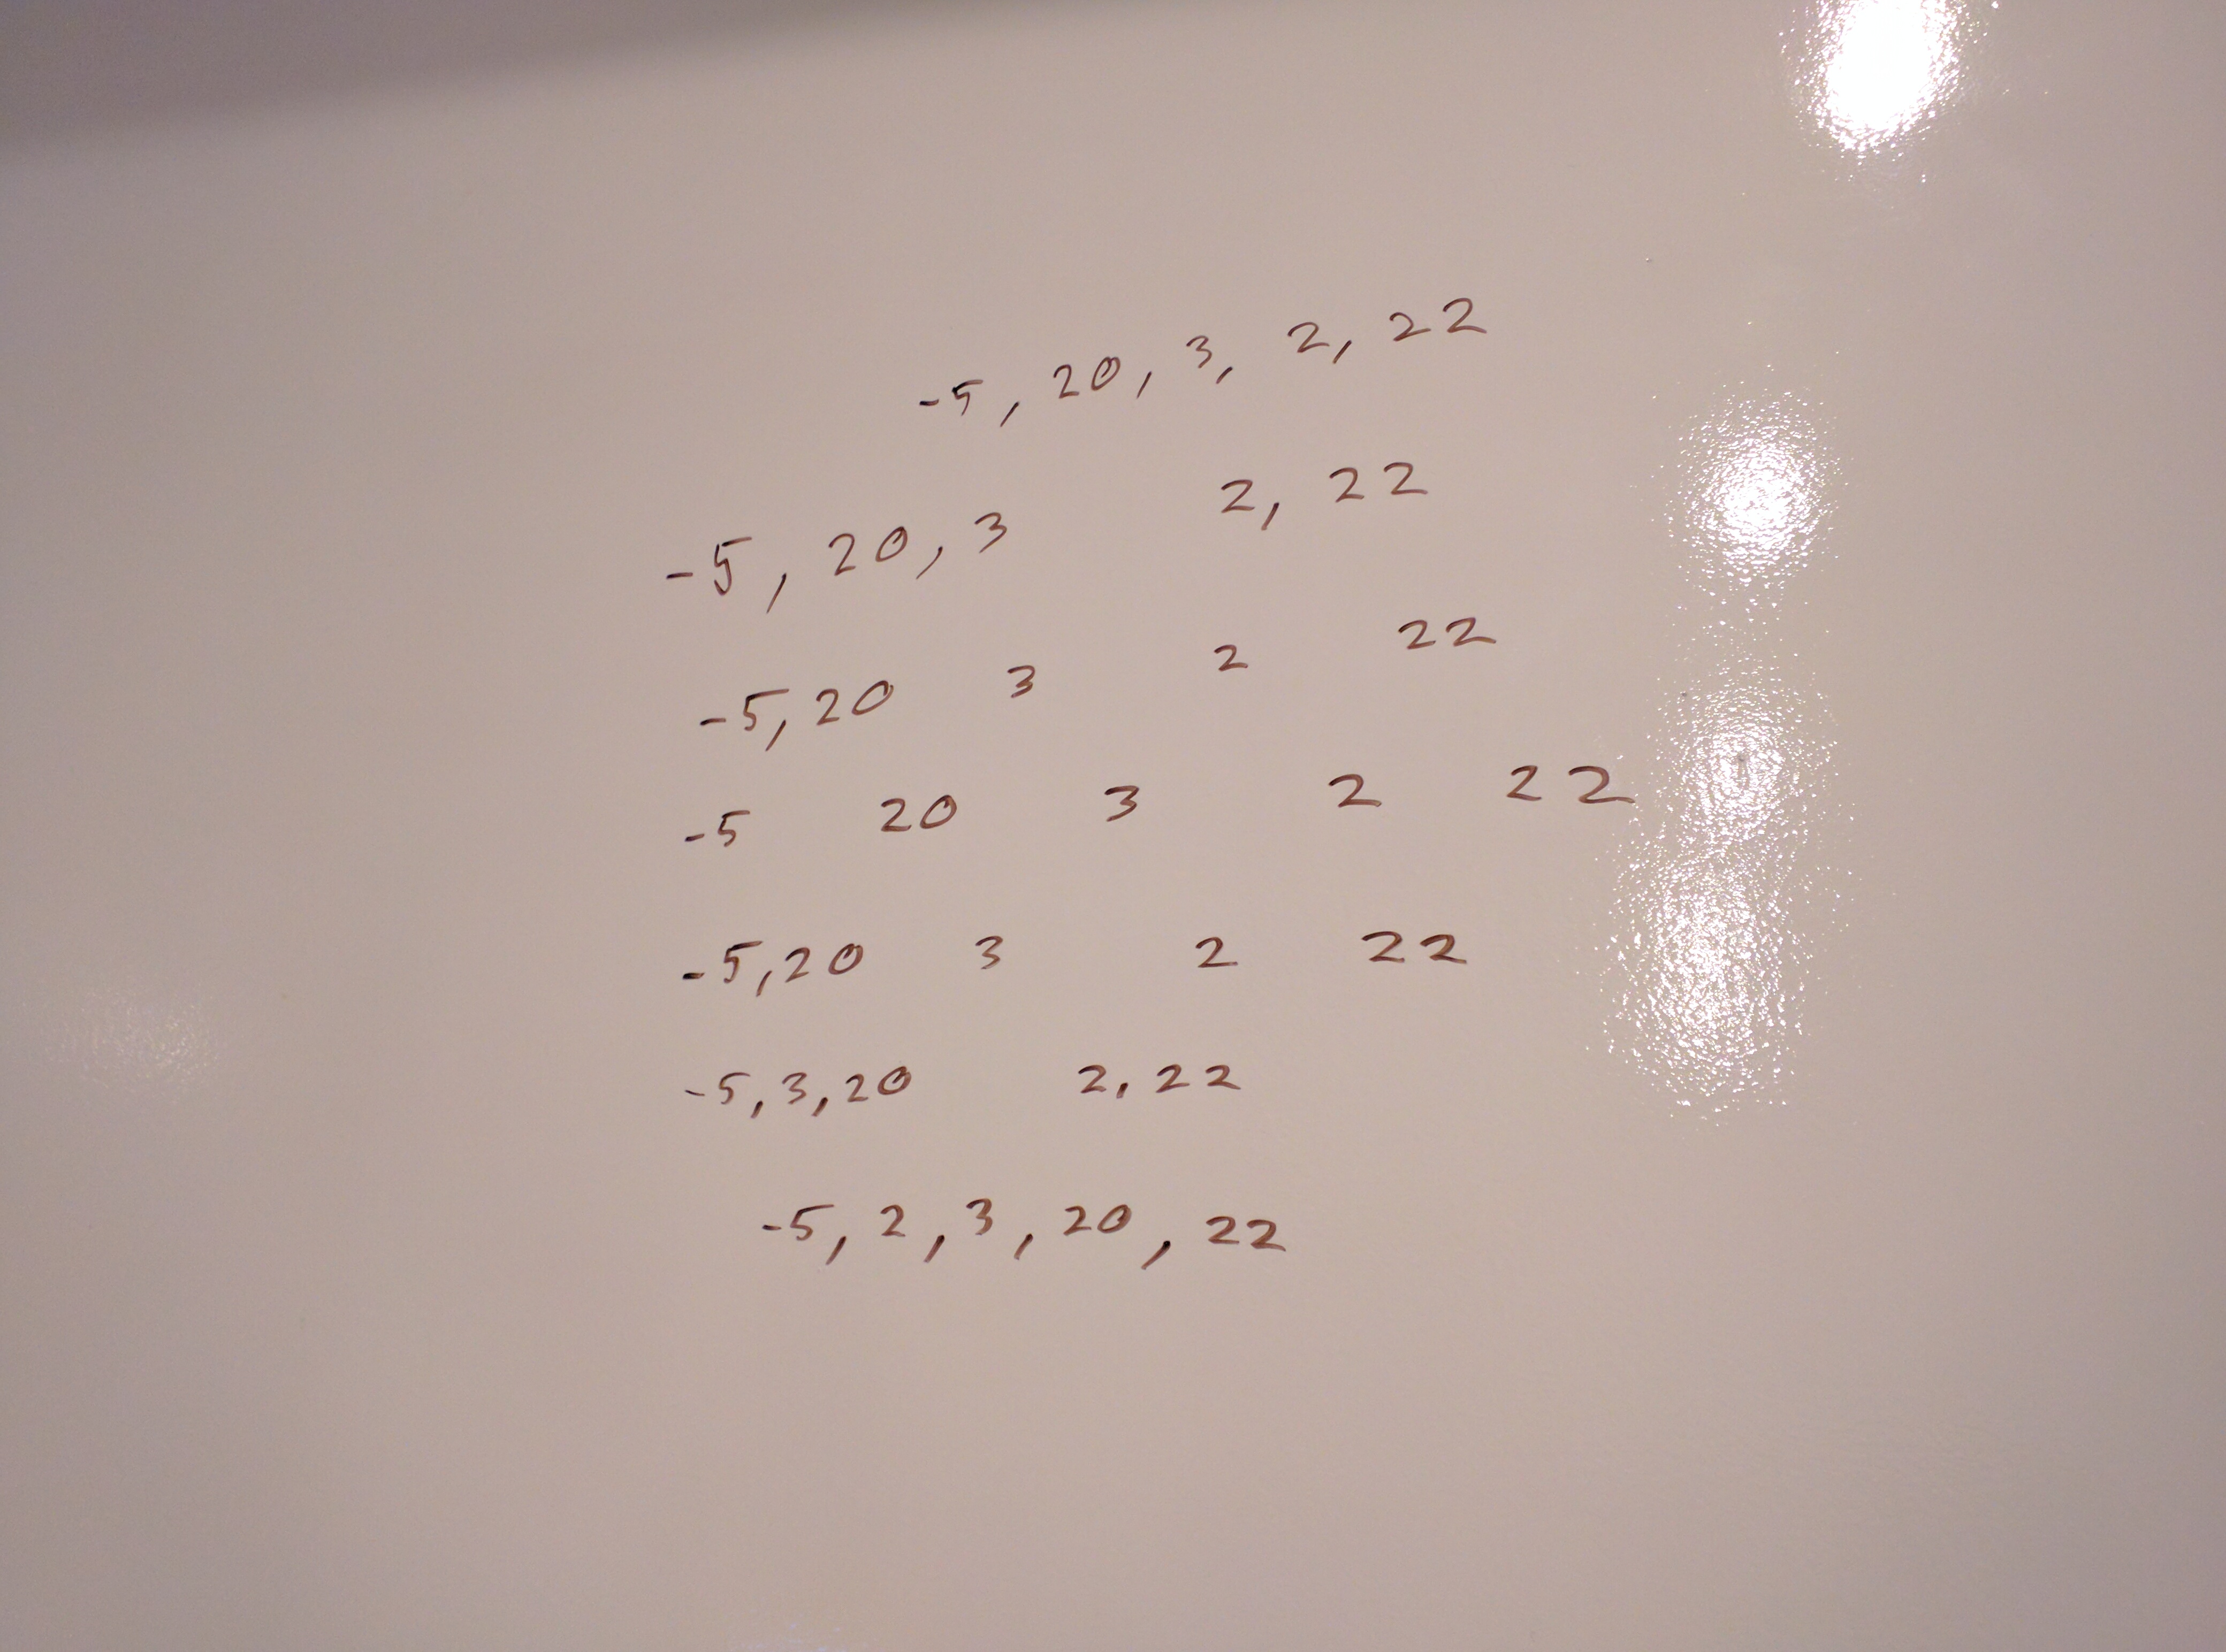 -5, 20, 3, 2, 22
-5, 20, 3 2, 22
-5, 20 3 2 22
-5 20 3 2 22
-5, 20 3 2 22
-5, 3, 20 2, 22
-5, 2, 3, 20, 22